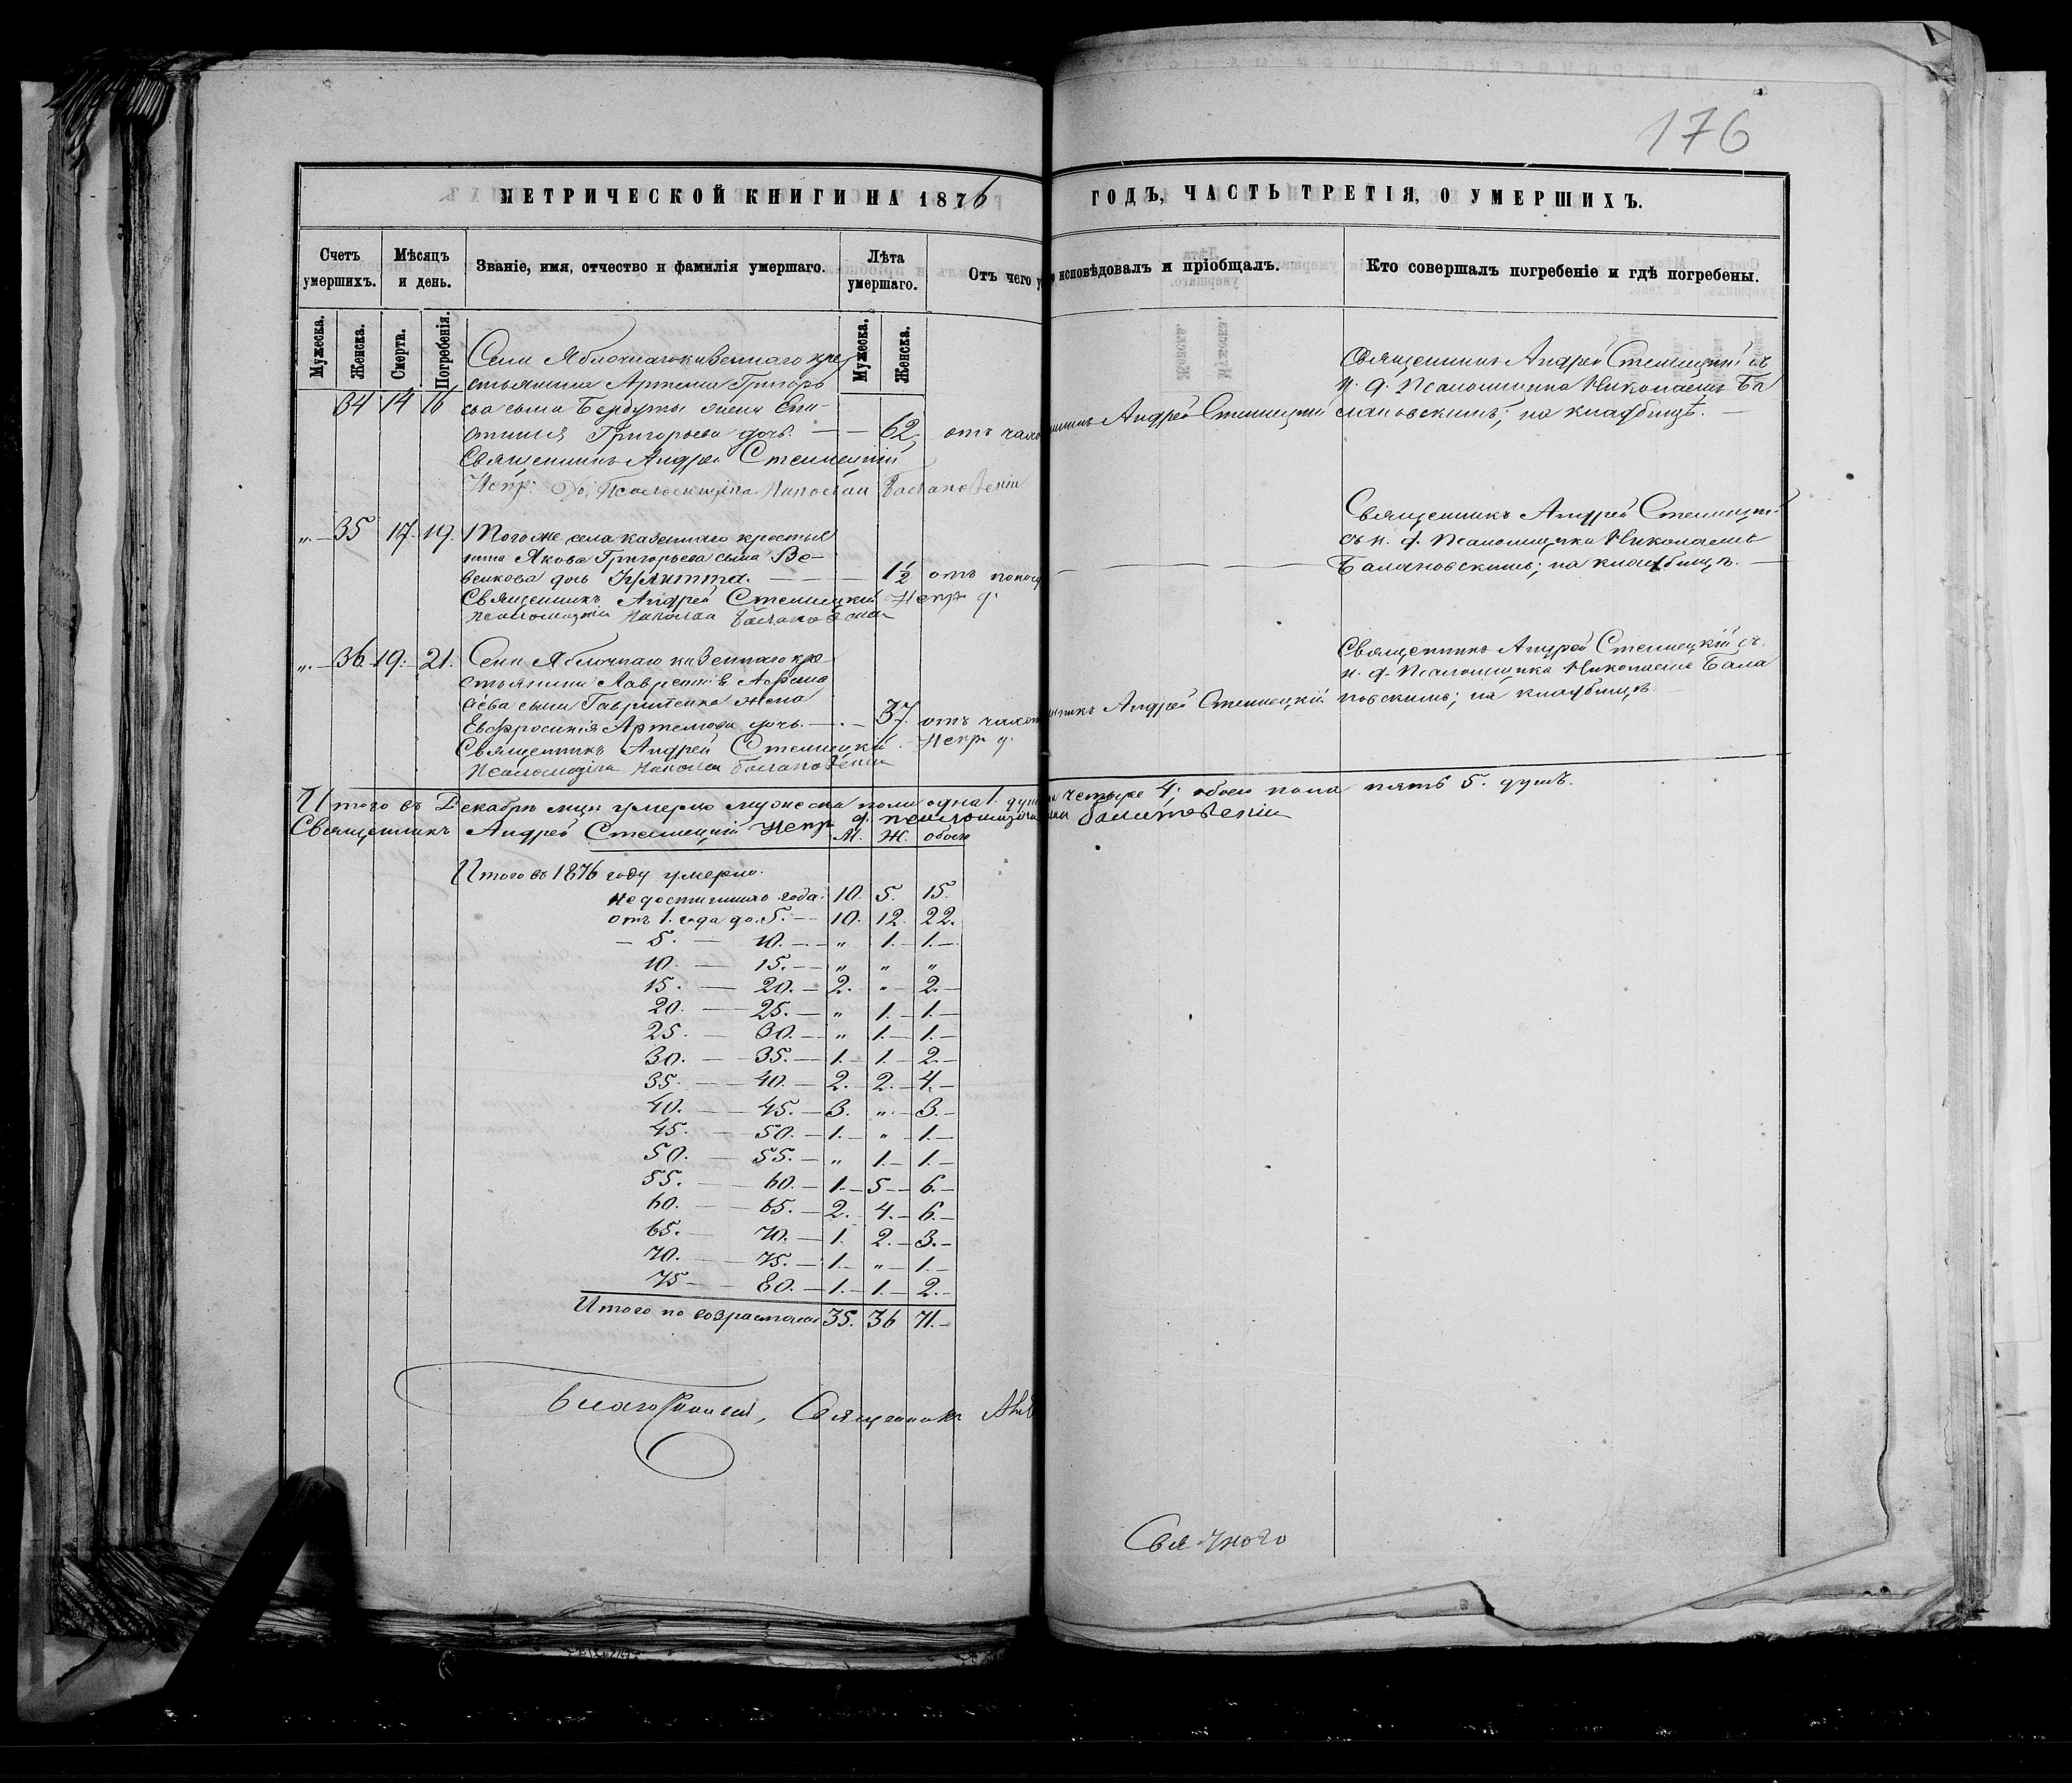 176
МЕТРИЧЕСКОЙ КНИГИ НА 1876 ГОДЪ, ЧАСТЬ ТРЕТІЯ, О УМЕРШИХЪ.
Счетъ умершихъ.
Мѣсяцъ и день.
Званіе, имя, отчество и фамилія умершаго.
Лѣта умершаго.
Отъ чего у
исповѣдовалъ и пріобщалъ.
Кто совершалъ погребеніе и гдѣ погребены.
Мужеска.
Женска.
Смерти.
Погребенія.
Мужеска.
Женска.
Села Яблочнаго казеннаго кре
стьянина Артема Григорь
34 14 16 ева сына жена Епи-
Григорьева дочь. — — 62, отъ чахо
Священникъ Андрей Стеллецкій
Испр. до. Псаломщика Николай
Андрей Стеллецкій
Священникъ Андрей Стеллецкій съ
и. д. Псаломщика Николаемъ Ба
лановскимъ; на кладбищѣ. —
„ — 35 17. 19. Тогоже села казеннаго крестья
нина Якова Григорьева сына Ве-
венкова дочь Іулитта. — — — 1½ отъ понос
Священникъ Андрей Стеллецкій Испр д.
Псаломщика Николай
Священникъ Андрей Стеллецкій
съ и. д. Псаломщика Николаемъ
Балановскимъ; на кладбищѣ. —
„ — 36. 19. — 21. Села Яблочнаго казеннаго кре-
стьянина Лаврентія Афана
сьева сына Гавриленка жена
Евфросинія Артемова дочь. — . — 37. отъ чахот
Священникъ Андрей Стеллецкій. Испр д.
Псаломщика Николай
Андрей Стеллецкій
Священникъ Андрей Стеллецкій съ
и. д. Псаломщика Николаемъ Бала
новскимъ; на кладбищѣ —
Итого въ Декабрѣ мцѣ умерло мужеска пола одна 1. душ четыре 4; обоего пола пять 5. душъ.
Священникъ Андрей Стеллецкій Испр д. псаломщика
М. Ж. обоего
Итого въ 1876 году умерло.
Недостигшихъ года. 10. 5. 15.
отъ 1. года до. 5. — 10. 12. 22.
— 5. — 10. — „ 1. — 1. —
10. — 15. — „ „ „
15. — 20. — 2. „ — 2. —
20. — 25. — „ 1. — 1. —
25. — 30. — „ 1. — 1. —
30. — 35. — 1. — 1. — 2. —
35. — 40. — 2. — 2. — 4. —
40. — 45. — 3. „ — 3. —
45. — 50. — 1. — „ — 1. —
50. — 55. — „ 1. — 1. —
55. — 60. — 1. — 5 — 6. —
60. — 65. — 2. — 4. — 6. —
65. — 70. — 1. 2. — 3. —
70. — 75. — 1. — „ — 1. —
75 — 80. — 1. — 1. — 2. —
Итого по возрастамъ 35. 36 71. —
Благочинный, Священникъ